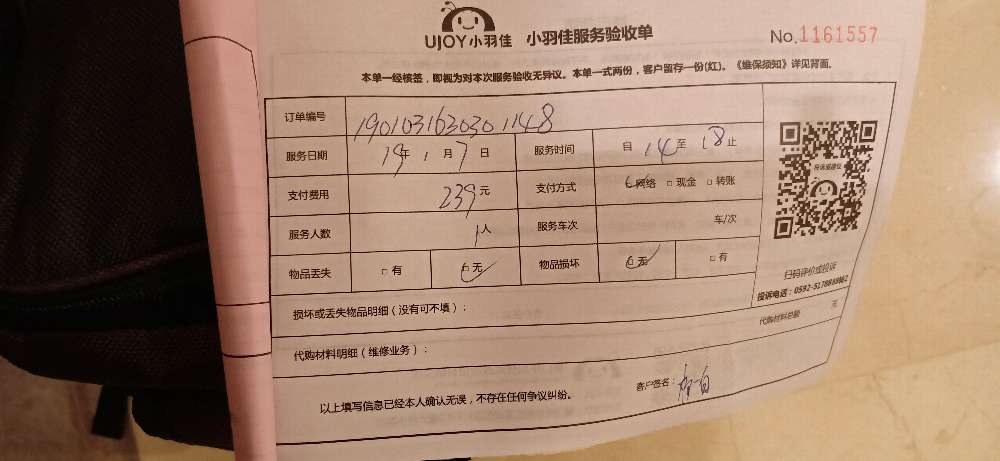 UJOY小羽佳 小羽佳服务验收单 No.1161557
本单一经核签，即视为对本次服务验收无异议。本单一式两份，客户留存一份(红)。《维保须知》详见背面。
订单编号 190103163030 1148
服务日期 19年1月7日 服务时间 自14至18止
支付费用 239元 支付方式 网络 □现金 □转账
服务人数 1人 服务车次 车/次
物品丢失 □有 □无 物品损坏 □无 □有
扫码评价或投诉
投诉电话：0592-5178
损坏或丢失物品明细（没有可不填）：
代购材料明细（维修业务）： 代购材料总额 元
以上填写信息已经本人确认无误，不存在任何争议纠纷。 客户签名：